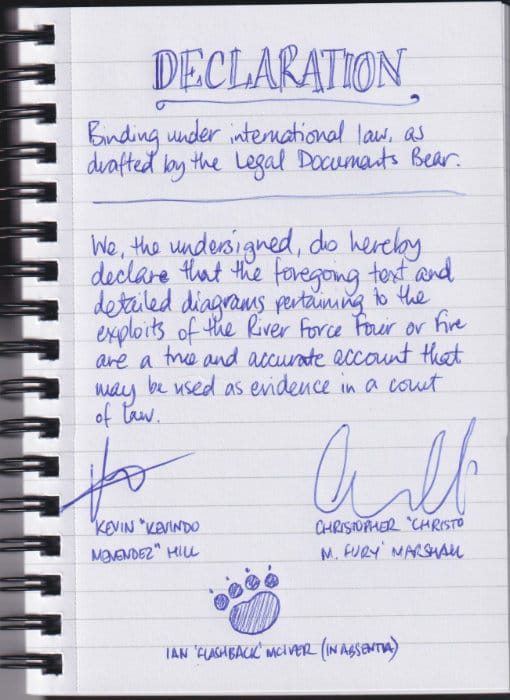 DECLARATION
Binding under international law, as
drafted by the Legal Documents Bear.
We, the undersigned, do hereby
declare that the foregoing text and
detailed diagrams pertaining to the
exploits of the River Force Four or Five
are a true and accurate account that
may be used as evidence in a court
of law.
KEVIN "KEVINDO
MENENDEZ" HILL
CHRISTOPHER 'CHRISTO
M. FURY' MARSHALL
IAN 'FLASHBACK' MCIVER (IN ABSENTIA)